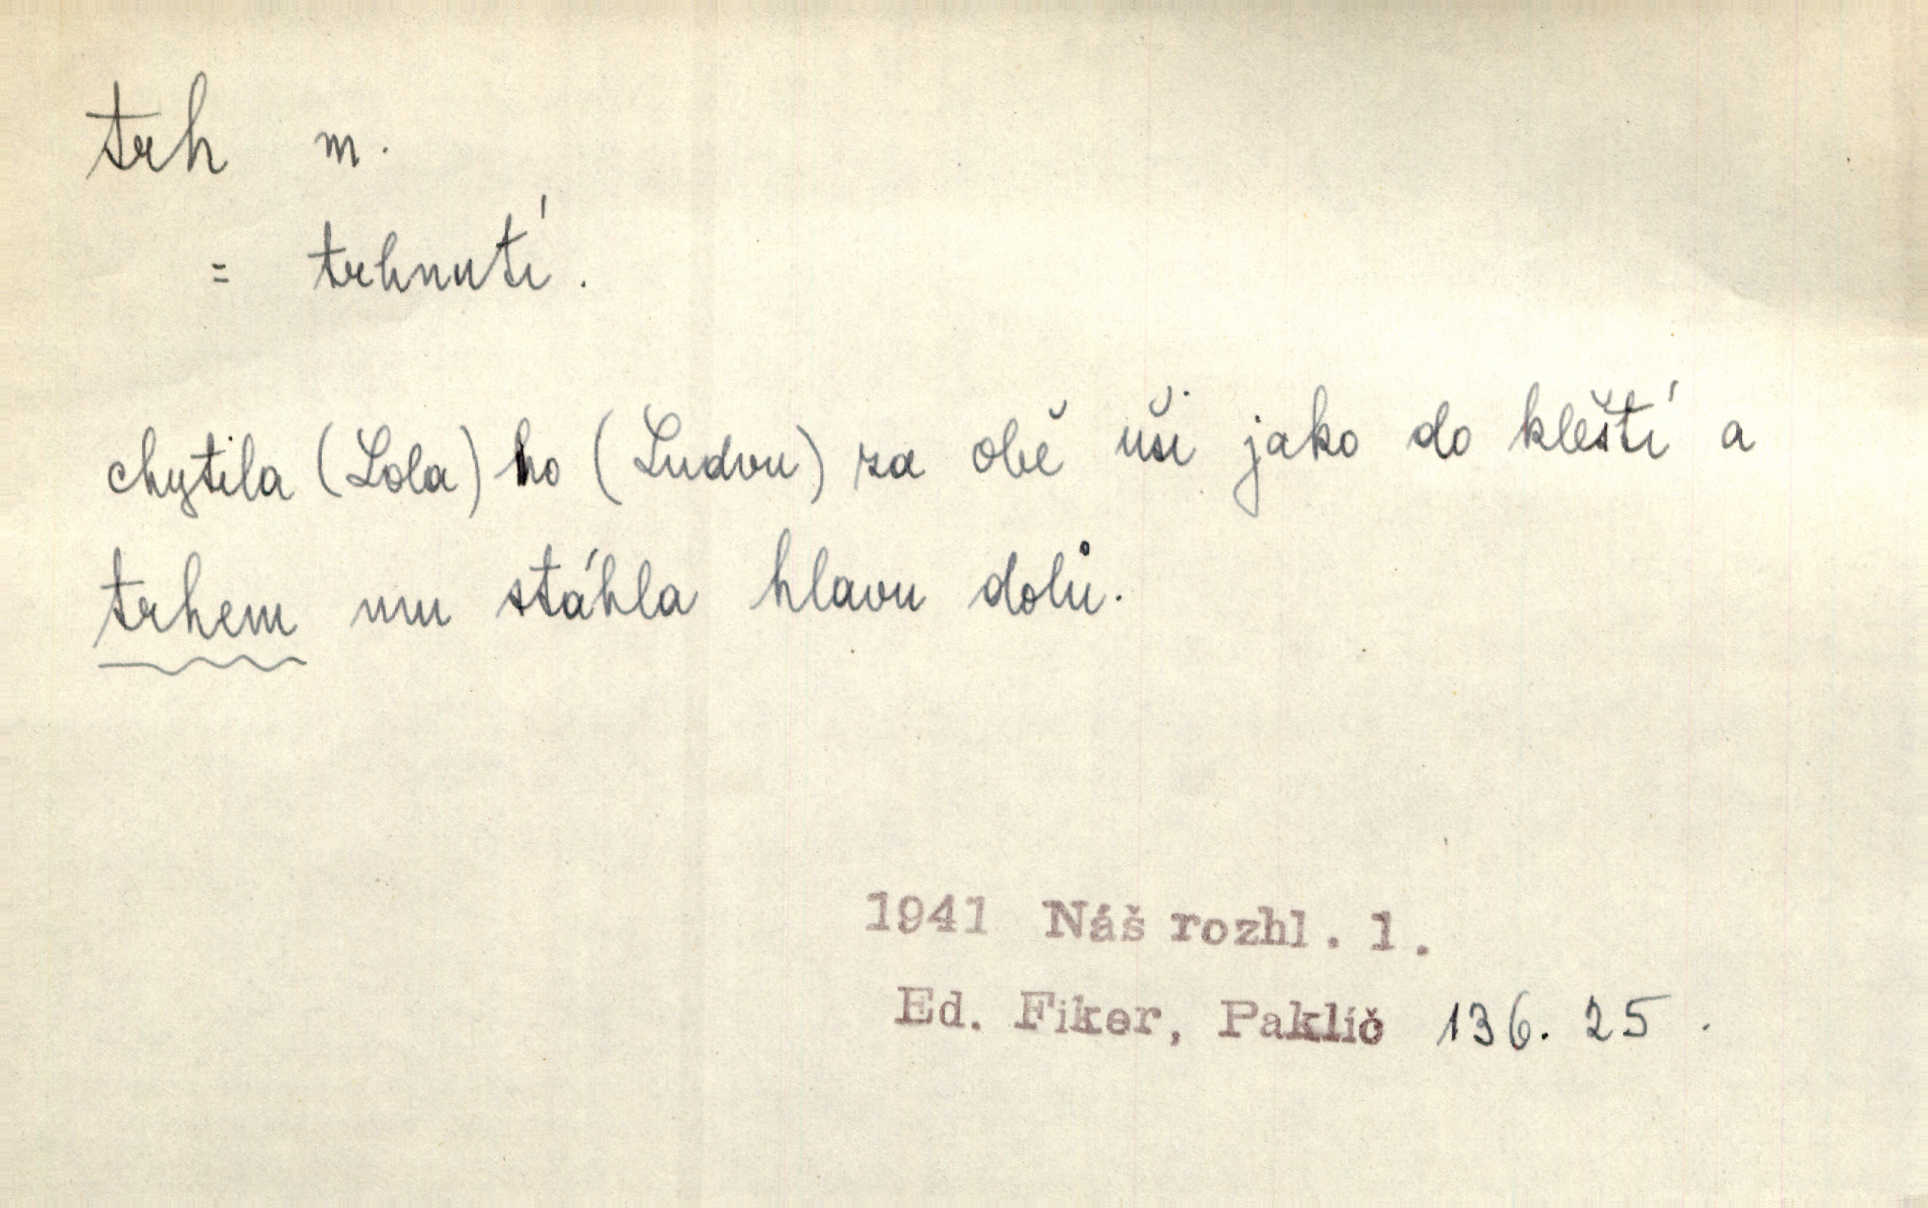 trh m.
= trhnutí.
chytila (Lola) ho (Ludvu) za obě uši jako do kleští a
trhem mu stáhla hlavu dolů.
1941 Náš rozhl. 1.
Ed. Fiker, Paklíč 136. 25.